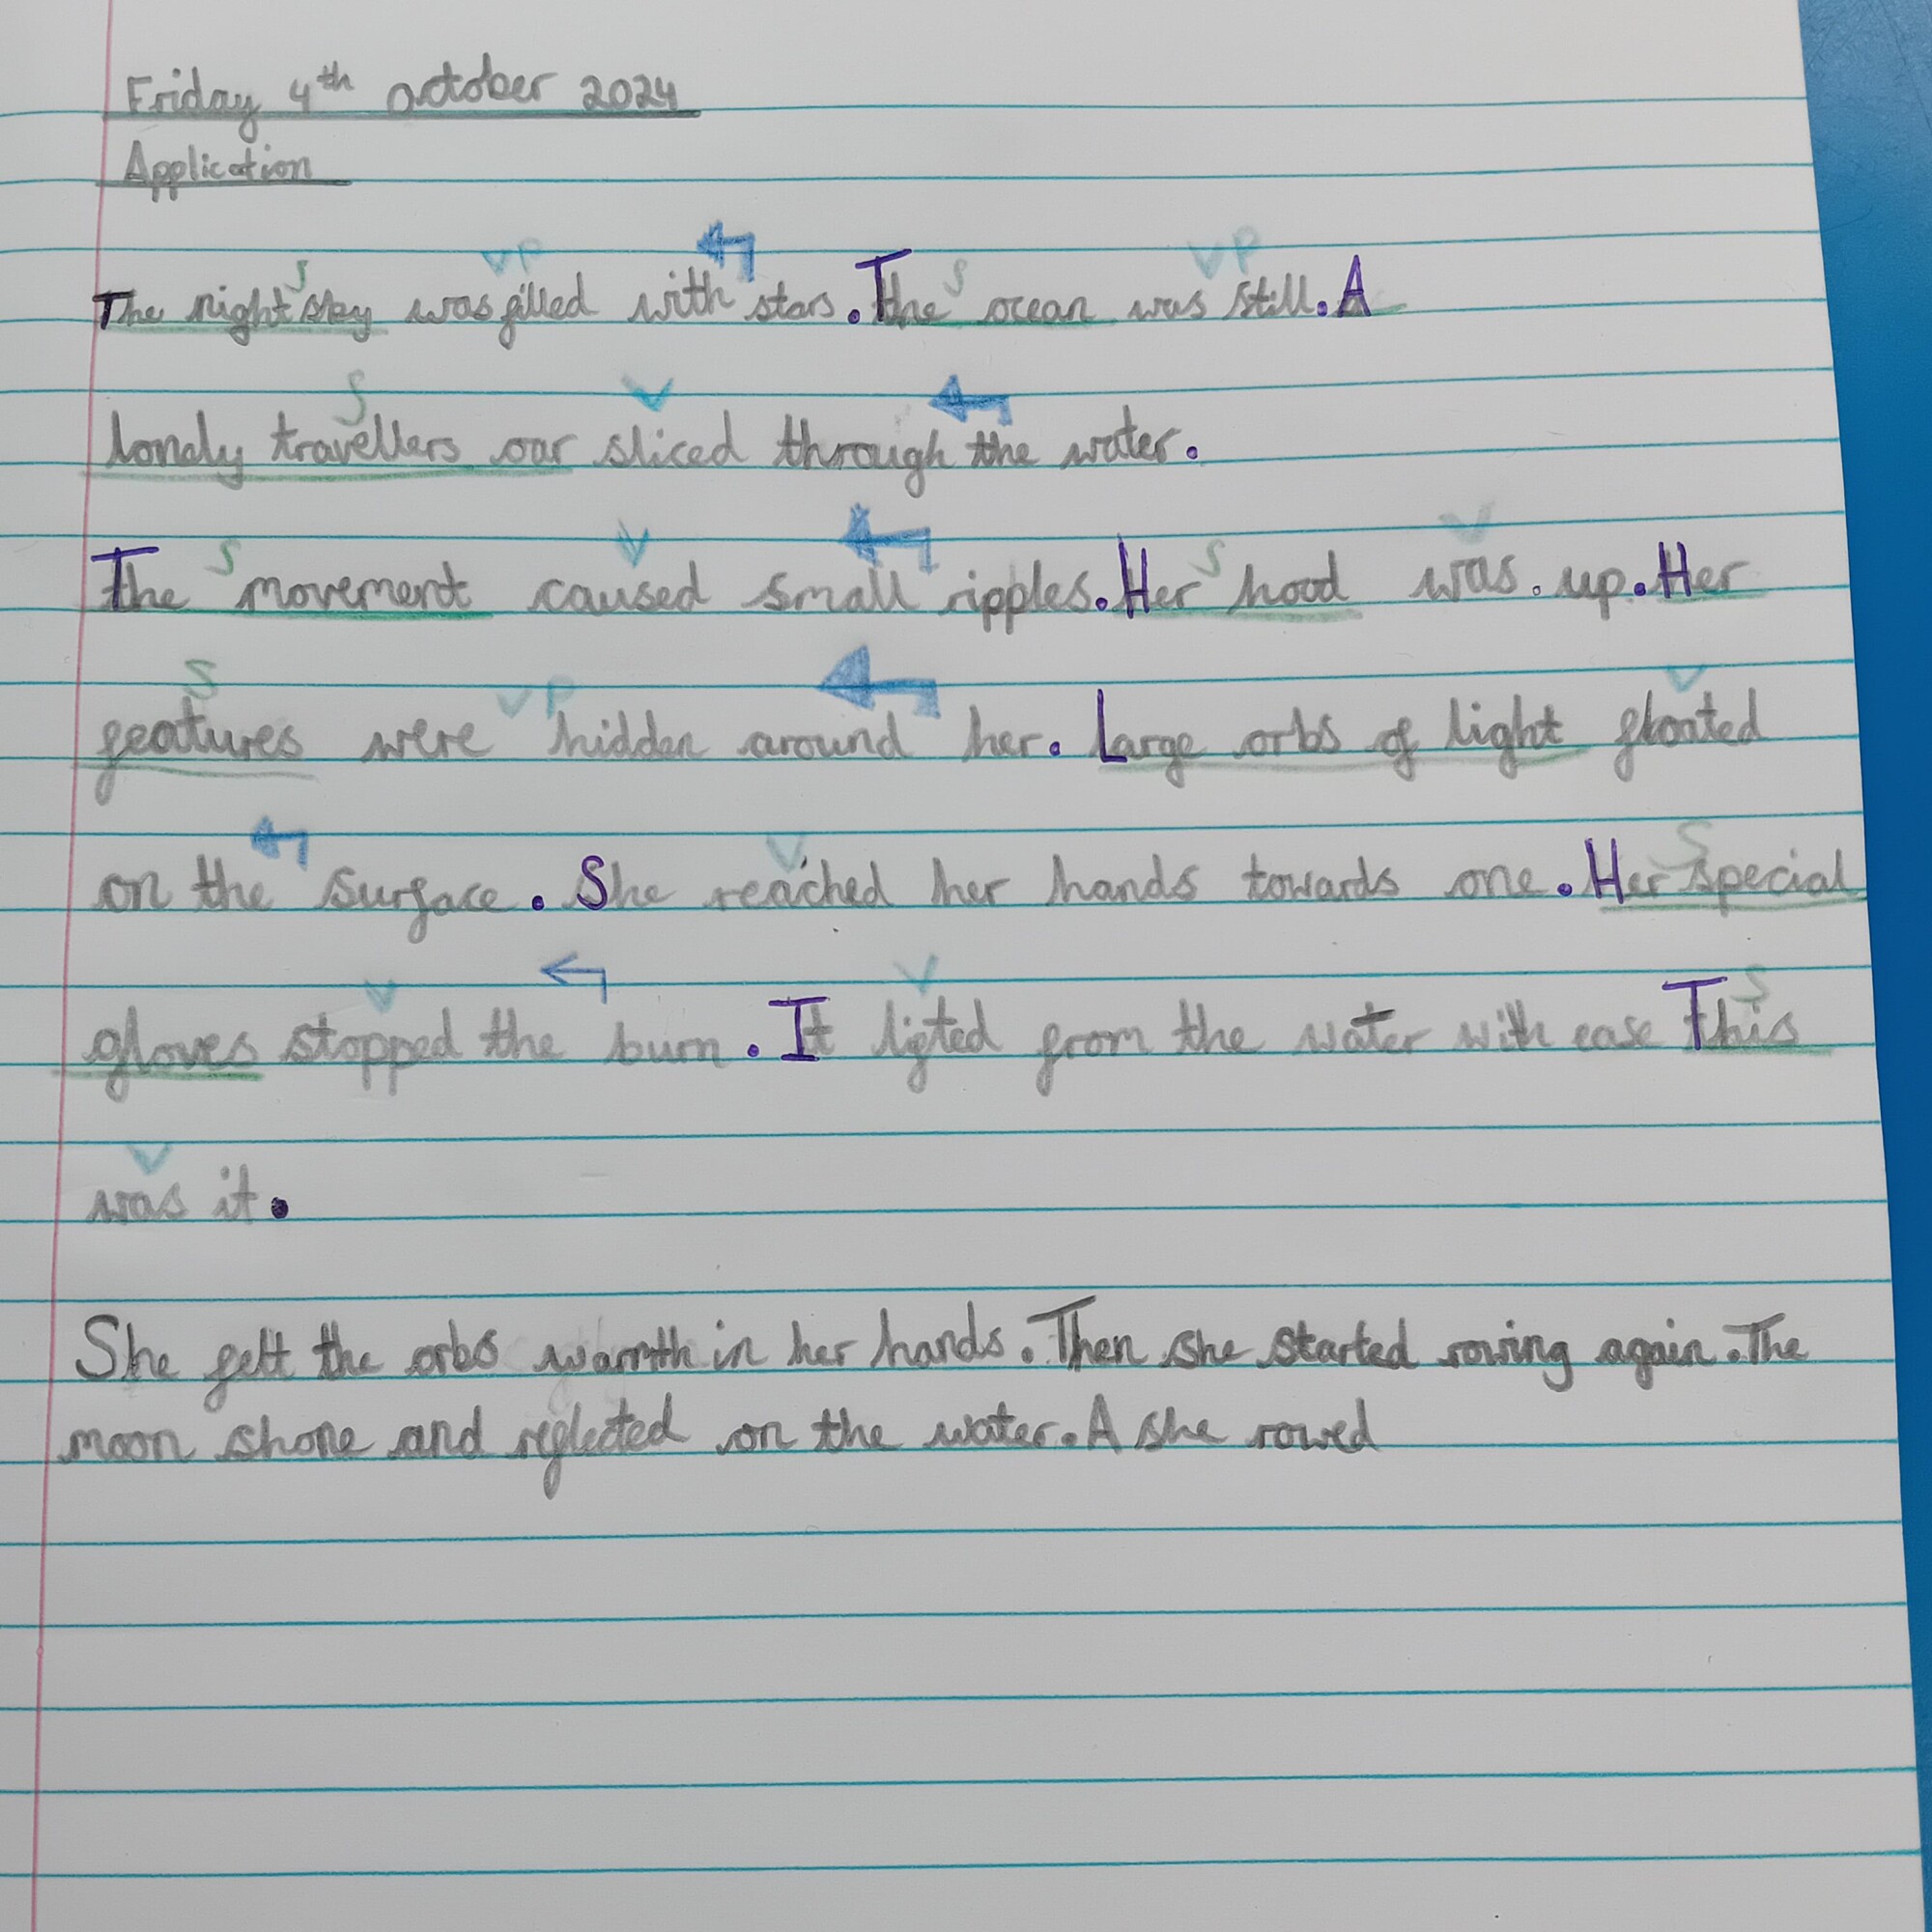 Friday 4th october 2024
Application
s vp vp
The night sky was filled with stars. The s ocean was still. A
s v
lonely travellers oar sliced through the water.
s v s v
The movement caused small ripples. Her hood was. up. Her
s vp v
features were hidden around her. Large orbs of light floated
v s
on the surface. She reached her hands towards one. Her special
v v s
gloves stopped the burn. It lifted from the water with ease This
v
was it.
She felt the orbs warmth in her hands. Then she started rowing again. The
moon shone and reflected on the water. A she rowed